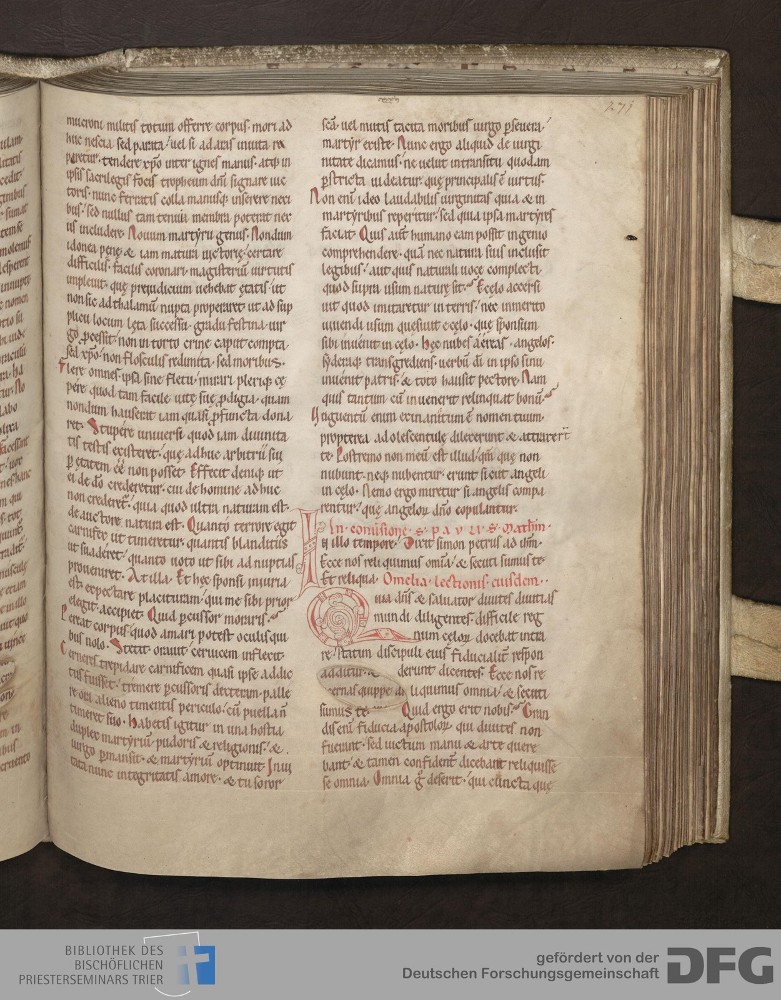 271
mucroni militis totum offerre corpus· mori ad
huc nescia sed parata· uel si ad aras inuita ra
peretur· tendere xp̄o inter ignes manus· atq; in
ipsis sacrilegis focis tropheum dn̄i signare uic
toris· nunc ferratis colla manusq; inserere nexi
bus· sed nullus tam tenuia membra poterat nex
us includere· Nouum martyrii genus· Nondum
idonea pene & iam matura uictorie· certare
difficilis· facilis coronari· magisteriū uirtutis
impleuit· que preiudicium uehebat ętatis· ut
non sic ad thalamū nupta properaret· ut ad sup
plicii locum lęta successu· gradu festina uir
go ꝓcessit· non intorto crine caput compta·
sed xp̄o· non flosculis redimita· sed moribus·
Flere omnes· ipsa sine fletu· mirari pleriq; ce
pere quod tam facile uitę suę ꝓdiga· quam
nondum hauserit iam quasi ꝑfuncta dona
ret· Stupere uniuersi quod iam diuinita
tis testis existeret· que adhuc arbitra sui
ꝑ ętatem ēē non posset· Effecit deniq; ut
ei de dō crederetur· cui de homine adhuc
non crederet̄· quia quod ultra naturam est·
de auctore naturę est· Quanto terrore egit
carnifex ut timeretur· quantis blanditiis
ut suaderet· quanto uoto ut sibi ad nuptias
proueniret· At illa· Et hęc sponsi iniuria
est expectare placituram· qui me sibi prior
elegit· accipiet· Quid ꝑcussor moraris·
Pereat corpus quod amari potest oculis qui
bus nolo· Stetit· orauit· ceruicem inflexit·
Cerneres trepidare carnificem quasi ipse addic
tus fuisset· tremere ꝑcussoris dexteram· palle
re ora alieno timentis periculo· cū puella ñ
timeret suo· Habetis igitur in una hostia
duplex martyriū· pudoris & religionis· &
uirgo ꝑmansit· & martyriū optinuit· Inui
tata nunc integritatis amore· & tu soror
scā· uel mutis tacita moribus uirgo ꝑseuera·
martyr existe· Nunc ergo aliquid de uirgi
nitate dicamus· ne uelut in transitu quodam
ꝑstricta uideatur· quę principalis ē uirtus·
Non enī ideo laudabilis uirginitas quia & in
martyribus reperitur· sed quia ipsa martyres
faciat· Quis aut̄ humano eam possit ingenio
comprehendere· quā nec natura suis inclusit
legibus· aut quis naturali uoce complecti·
quod supra usum naturę sit· E cęlo accersi
uit quod imitaretur in terris· nec inmerito
uiuendi usum quesiuit e cęlo· que sponsum
sibi inuenit in cęlo· Hęc nubes aera· angelos·
sydera transgrediens· uerbū dī in ipso sinu
inuenit patris· & toto hausit pectore· Nam
quis tantum cū inuenerit relinquat bonū·
Unguentū enim exinanitum ē nomen tuum·
propterea adolescentulę dilexerunt & attraxerūt
te· Postremo non meū est illud· qm̄ que non
nubunt· neq; nubentur· erunt sicut angeli
in cęlo· Nemo ergo miretur si angelis compa
rentur· quę angelorꝫ dn̄o copulantur·
In conuersione· S· PAULI· S· Mathm̄·
In illo tempore· Dixit simon petrus ad ihm̄·
Ecce nos reliquimus omnia· & secuti sumus te·
Et reliqua· Omelia lectionis eiusdem·
Quia dn̄s & saluator diuites diuitias
mundi diligentes· difficile reg
num celorꝫ docebat intra
re· statim discipuli eius fiducialit̄ respon
derunt dicentes· Ecce nos re
liquimus omnia· & secuti
sumus te· Quid ergo erit nobis· Gran
dis enī fiducia apostolorꝫ· qui diuites non
fuerunt· sed uictum manu & arte quere
bant· & tamen confident̄ dicebant reliquisse
se omnia· Omnia g̊ deserit· qui cuncta que
BIBLIOTHEK DES
BISCHÖFLICHEN
PRIESTERSEMINARS TRIER
gefördert von der
Deutschen Forschungsgemeinschaft
DFG